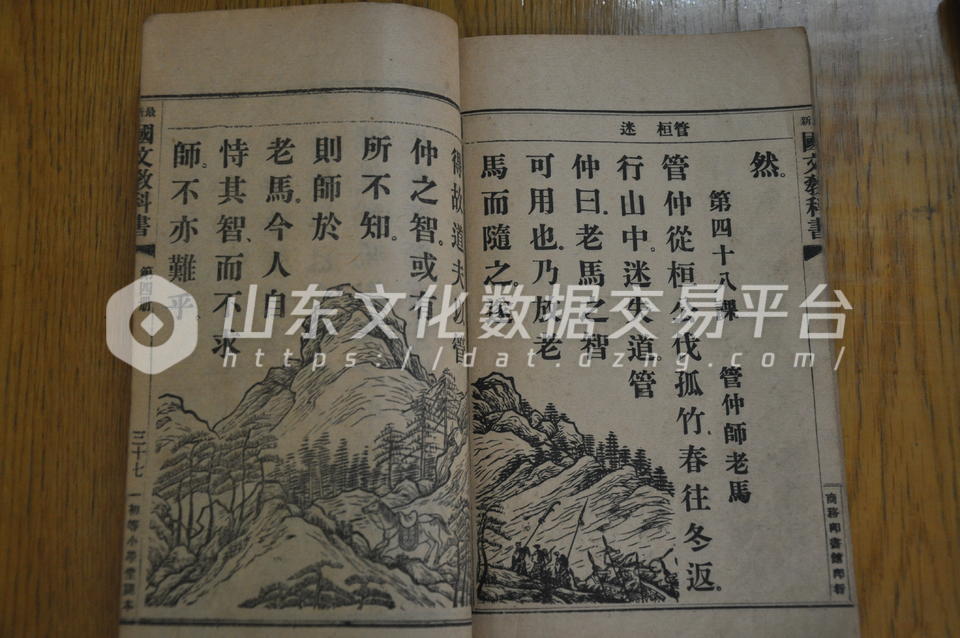 管 桓 迷
然。
第四十八課 管仲師老馬
管仲從桓公伐孤竹、春往冬返。
行山中。迷失道。管
仲曰。老馬之智
可用也。乃放老
馬而隨之。遂
國文教科書
商務印書館印行
得故道。夫以管
仲之智。或有
所不知。
則師於
老馬。今人自
恃其智、而不求
師。不亦難乎、
最新國文教科書
第四冊
三十七
初等小學堂課本
山东文化数据交易平台
https://dat.dzng.com/